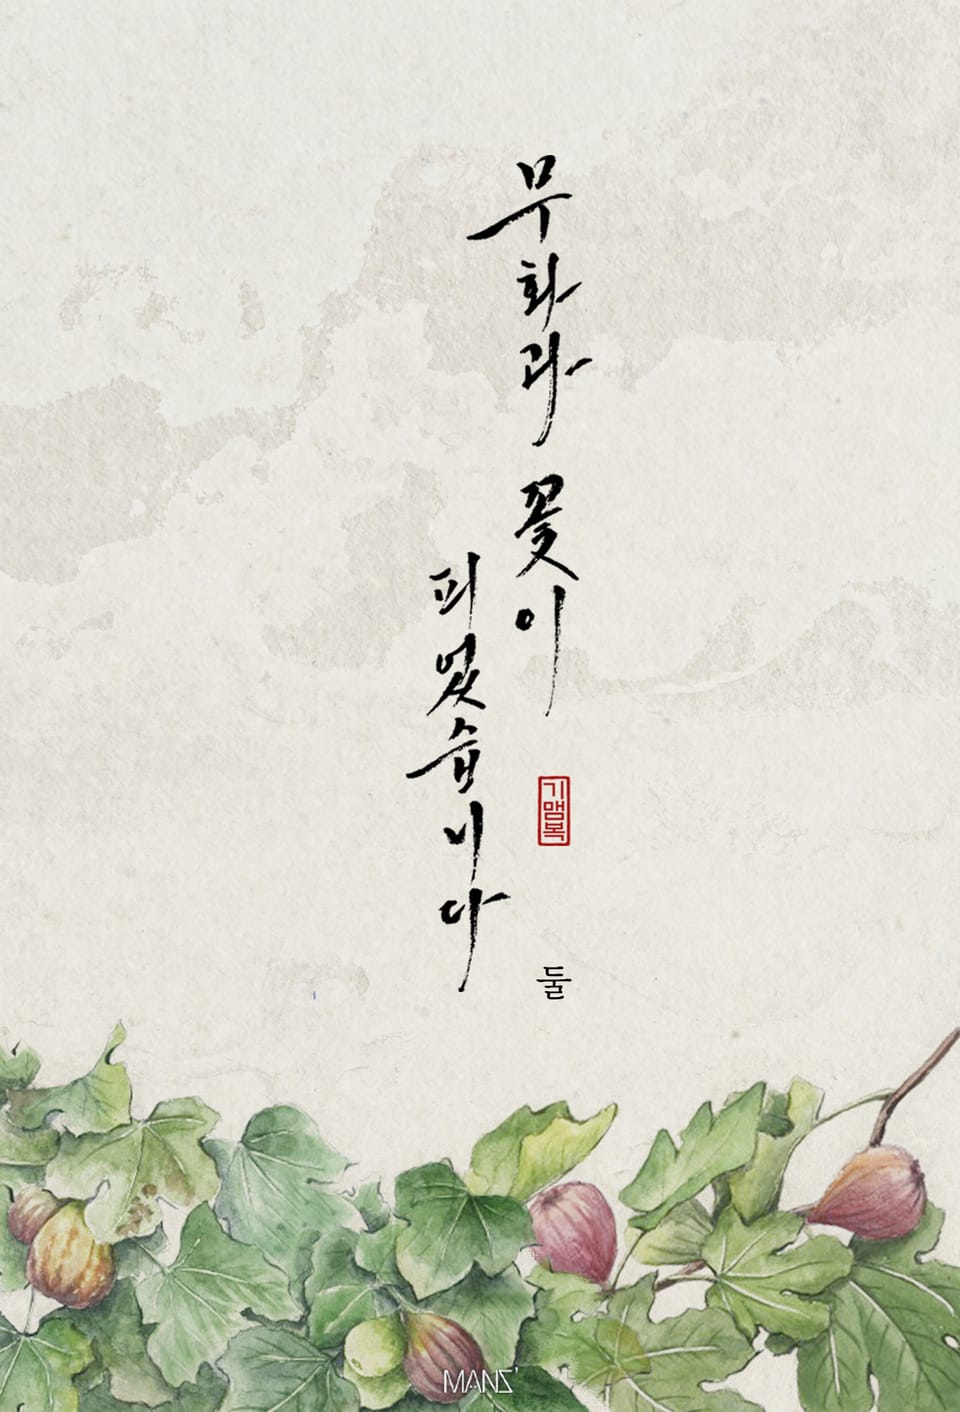 무화과 꽃이
피었습니다
기맴복
둘
MANZ'